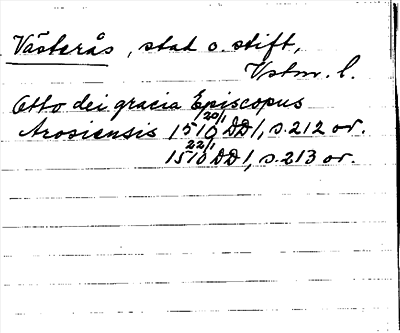 Västerås, stad o. stift,
Vstm. l.
Otto dei gracia Episcopus
Arosiensis 1510 20/1 DD1, s. 212 or.
1510 22/1 DD1, s. 213 or.